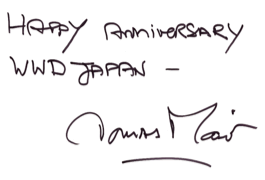 HAPPY ANNIVERSARY
WWD JAPAN —
Tomas Maier